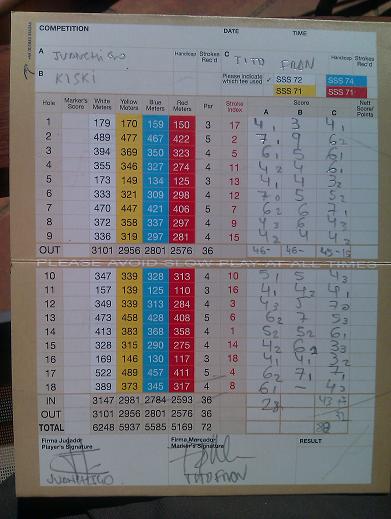 COMPETITION DATE TIME
A JUANCHIGO Handicap Strokes Rec'd C TITO FRAN Handicap Strokes Rec'd
B KISKI Please indicate which tee used SSS 72 SSS 74
SSS 71 SSS 71
Hole Marker's Score White Meters Yellow Meters Blue Meters Red Meters Par Stroke Index Score A B C Nett Score/Points
1 179 170 159 150 3 17 4 3 4
2 489 477 467 422 5 2 7 9 6
3 394 369 350 323 4 5 6 5 6
4 355 346 327 274 4 11 4 4 6
5 173 149 134 125 3 13 4 4 3
6 333 321 309 298 4 12 7 5 5
7 470 447 421 406 5 7 6 6 7
8 372 358 337 297 4 9 4 6 4
9 336 319 297 281 4 15 4 4 4
OUT 3101 2956 2801 2576 36 46 46 45
PLEASE AVOID SLOW PLAY AT ALL TIMES
10 347 339 328 313 4 10 5 5 4
11 157 139 125 110 3 16 4 4 4
12 349 339 313 284 4 3 4 5 7
13 473 458 428 408 5 6 6 7 5
14 413 383 368 358 4 1 5 5 6
15 328 315 290 275 4 14 4 6 3
16 169 146 130 117 3 18 4 4 3
17 522 489 457 411 5 4 6 7 7
18 389 373 345 317 4 8 6 – 4
IN 3147 2981 2784 2593 36 43
OUT 3101 2956 2801 2576 36
TOTAL 6248 5937 5585 5169 72 88
Firma Jugador Firma Marcador RESULT
Player's Signature Marker's Signature
JUANCHIGO TITO FRAN